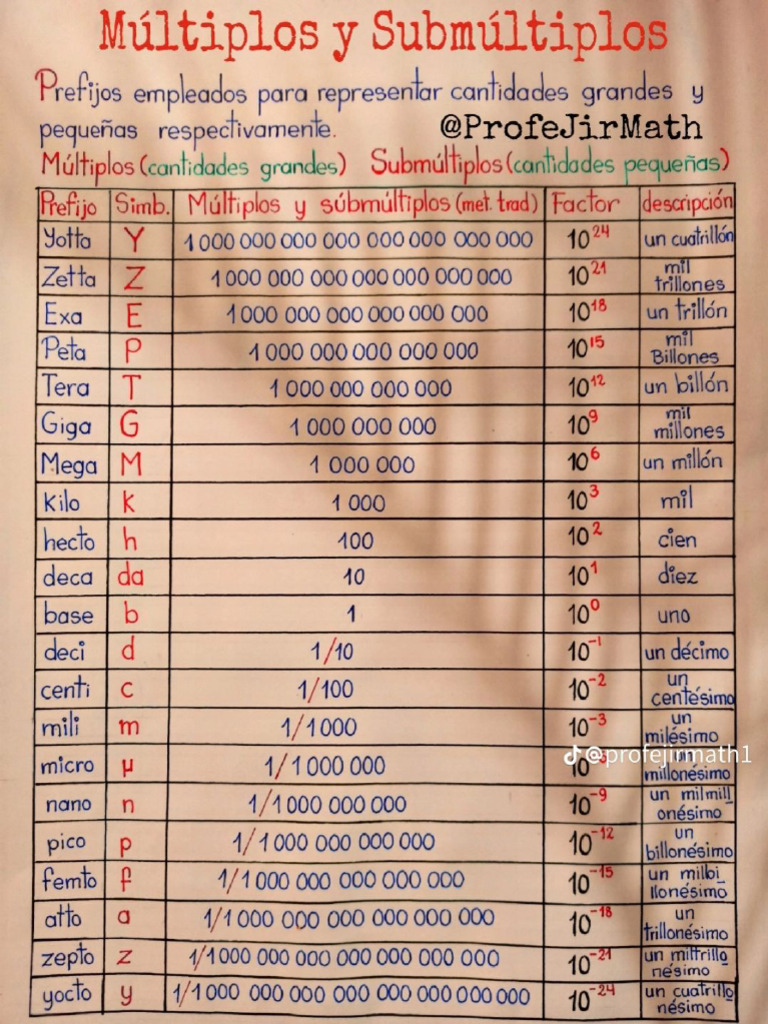 Múltiplos y Submúltiplos
Prefijos empleados para representar cantidades grandes y
pequeñas respectivamente. @ProfeJirMath
Múltiplos (cantidades grandes) Submúltiplos (cantidades pequeñas)
Prefijo Simb. Múltiplos y súbmúltiplos (met. trad) Factor descripción
Yotta Y 1 000 000 000 000 000 000 000 000 10²⁴ un cuatrillón
Zetta Z 1 000 000 000 000 000 000 000 10²¹ mil
trillones
Exa E 1 000 000 000 000 000 000 10¹⁸ un trillón
Peta P 1 000 000 000 000 000 10¹⁵ mil
Billones
Tera T 1 000 000 000 000 10¹² un billón
Giga G 1 000 000 000 10⁹ mil
millones
Mega M 1 000 000 10⁶ un millón
Kilo k 1 000 10³ mil
hecto h 100 10² cien
deca da 10 10¹ diez
base b 1 10⁰ uno
deci d 1/10 10⁻¹ un décimo
centi c 1/100 10⁻² un
centésimo
mili m 1/1 000 10⁻³ un
milésimo
@profejirmath1
micro µ 1/1 000 000 un
millonésimo
nano n 1/1 000 000 000 10⁻⁹ un milmill_
onésimo
pico p 1/1 000 000 000 000 10⁻¹² un
billonésimo
femto f 1/1 000 000 000 000 000 10⁻¹⁵ un milbi_
llonésimo
atto a 1/1 000 000 000 000 000 000 10⁻¹⁸ un
trillonésimo
zepto z 1/1 000 000 000 000 000 000 000 10⁻²¹ un miltrillo_
nésimo
yocto y 1/1 000 000 000 000 000 000 000 000 10⁻²⁴ un cuatrillo_
nésimo